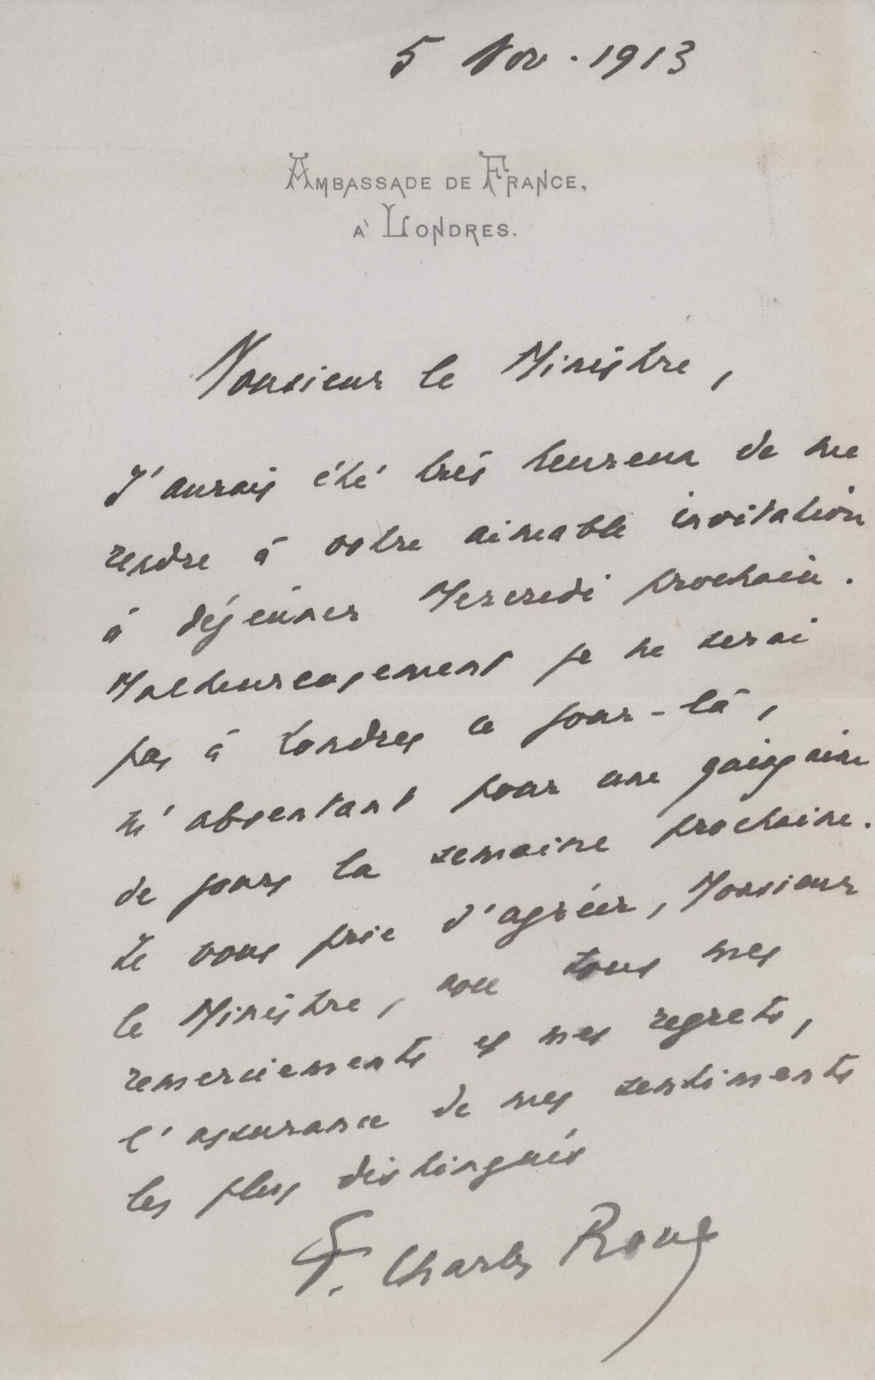 5 Nov. 1913
AMBASSADE DE FRANCE,
A' LONDRES.
Monsieur le Ministre,
J'aurais été très heureux de me
rendre à votre aimable invitation
à déjeuner Mercredi prochain.
Malheureusement je ne serai
pas à Londres ce jour-là,
m'absentant pour une quinzaine
de jours la semaine prochaine.
Je vous prie d'agréer, Monsieur
le Ministre, avec tous mes
remerciements et mes regrets,
l'assurance de mes sentiments
les plus distingués
F. Charles Roux